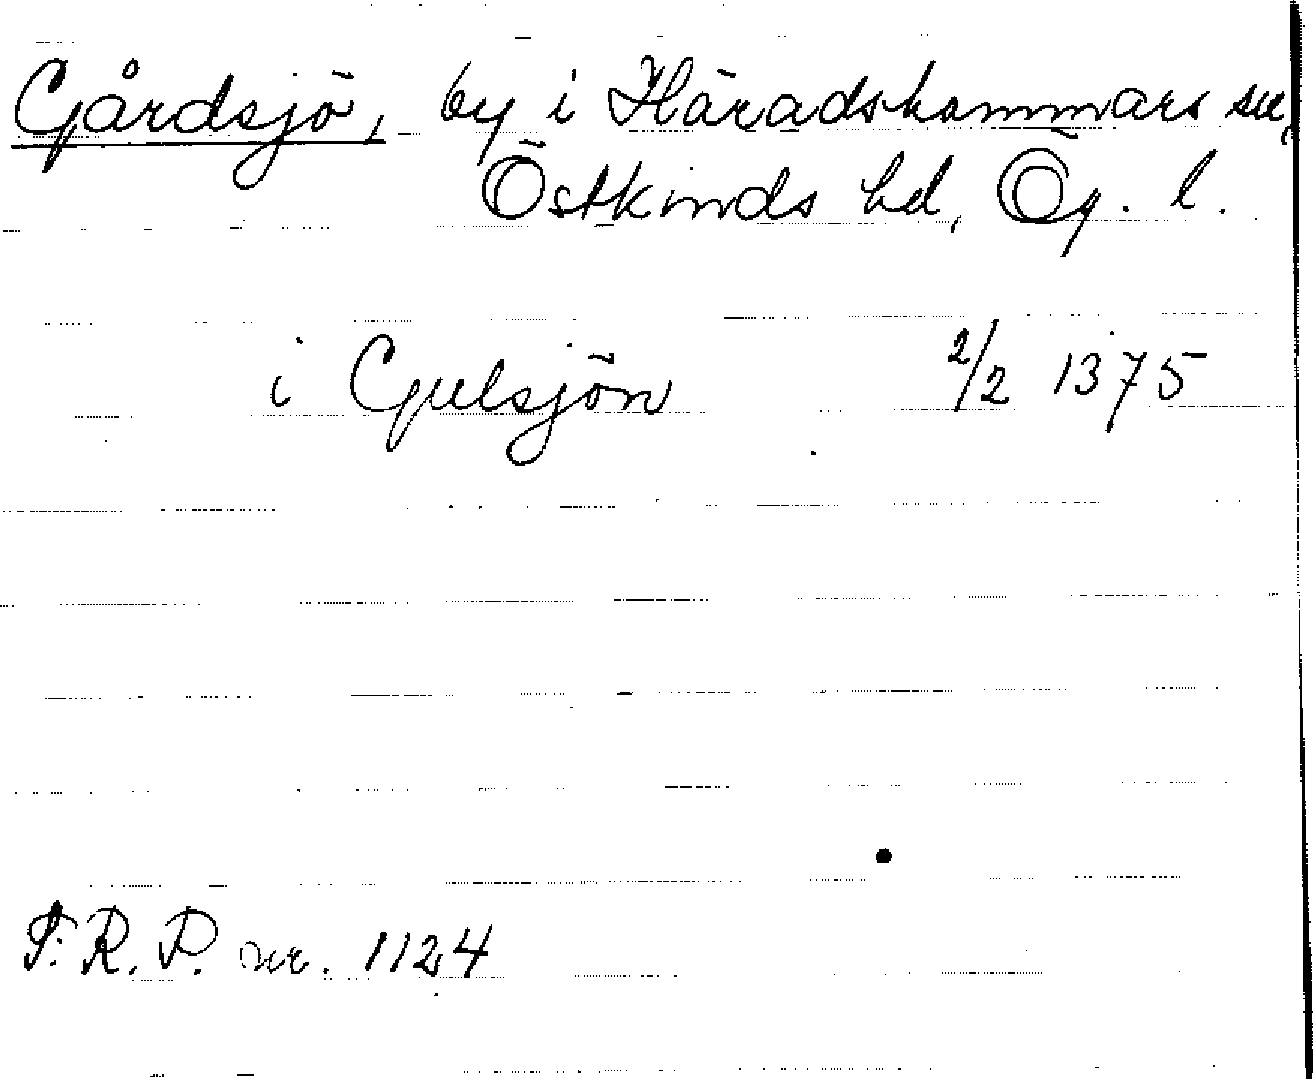 Gårdsjö, by i Häradshammars sn,
Östkinds hd, Ög. l.
i Gulsjön 2/2 1375
S. R. P. nr. 1124